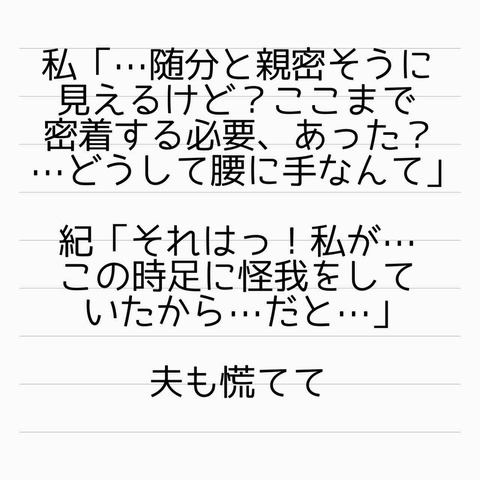 私「…随分と親密そうに
見えるけど？ここまで
密着する必要、あった？
…どうして腰に手なんて」
紀「それはっ！私が…
この時足に怪我をして
いたから…だと…」
夫も慌てて